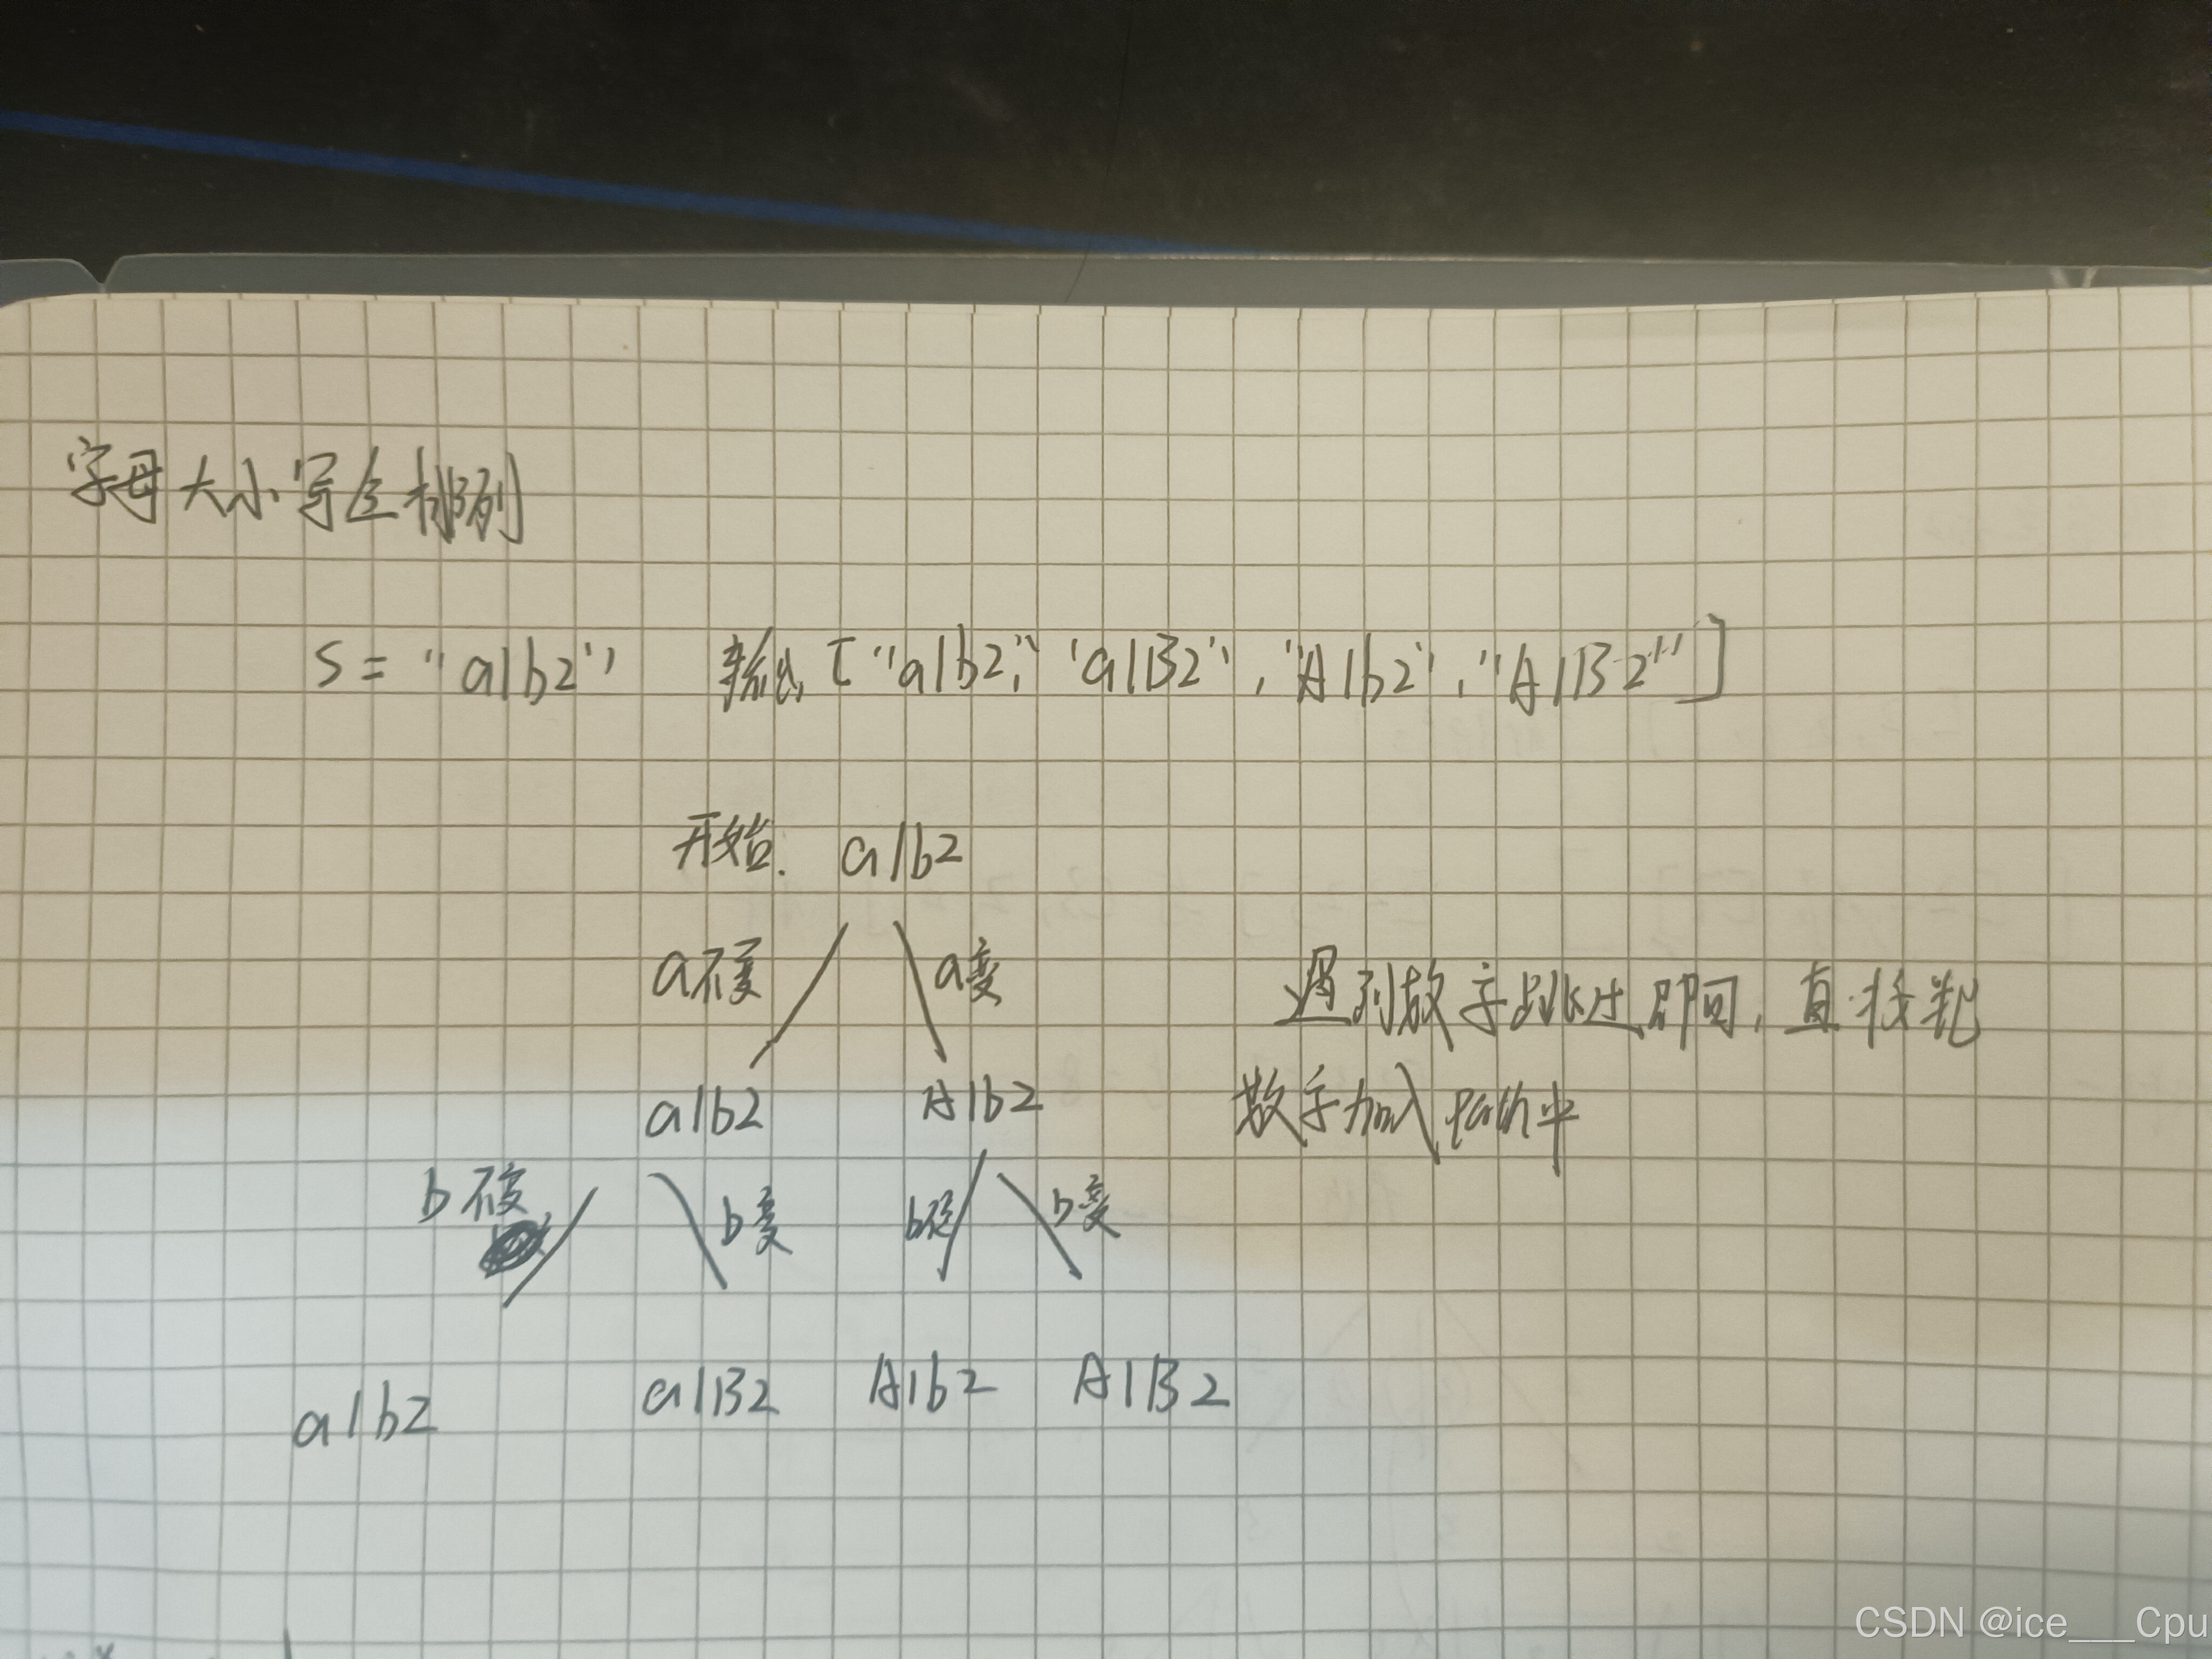 字母大小写全排列
s = "a1b2" 输出 ["a1b2", "a1B2", "A1b2", "A1B2"]
开始: a1b2
a不变 a变
遇到数字跳过即可, 直接把
a1b2 A1b2
数字加入path中
b不变 b变 b不变 b变
a1b2 a1B2 A1b2 A1B2
CSDN @ice___Cpu